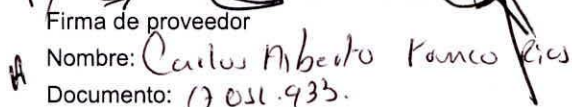 Firma de proveedor
Nombre: Carlos Alberto Franco Rios
Documento: 17 051.933.